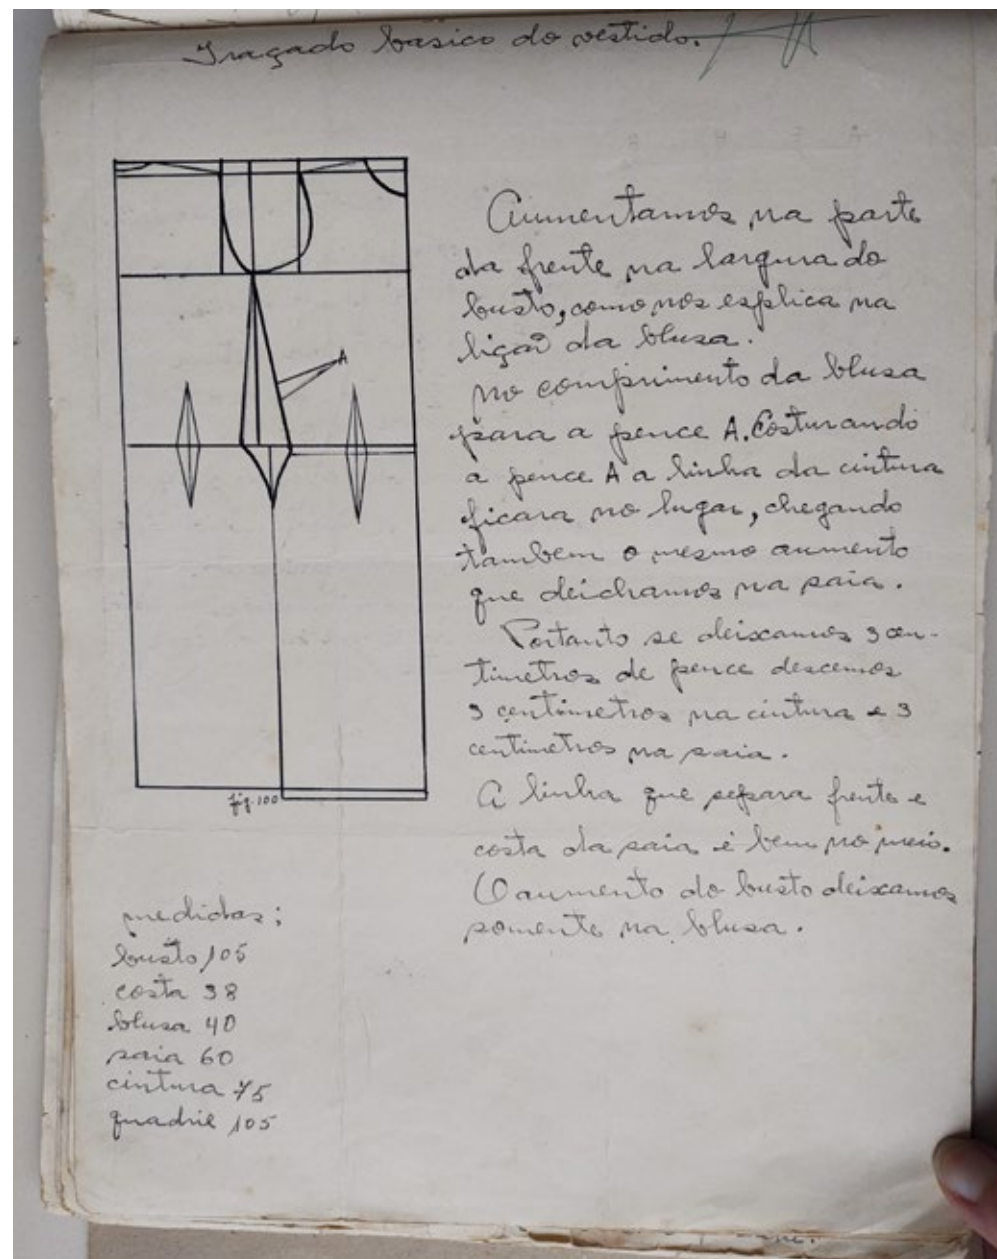 Traçado básico do vestido.
A
fig. 100
Aumentamos na parte
da frente na largura do
busto, como nos esplica na
ligaõ da blusa.
no comprimento da blusa
para a pence A. Costurando
a pence A a linha da cintura
ficara no lugar, chegando
tambem o mesmo aumento
que deichamos na saia.
Portanto se deixamos 3 cen-
timetros de pence descemos
3 centimetros na cintura e 3
centimetros na saia.
A linha que separa frente e
costa da saia é bem no meio.
O aumento do busto deixamos
somente na blusa.
medidas;
busto 105
costa 38
blusa 40
saia 60
cintura 75
quadril 105